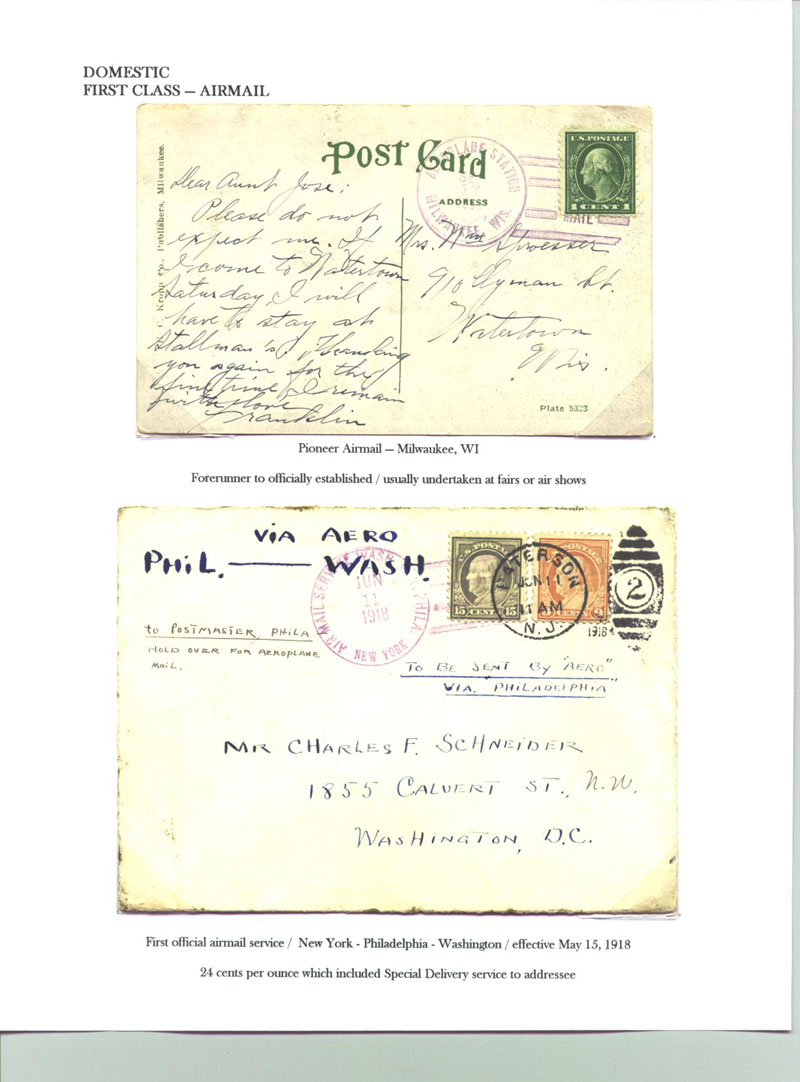 DOMESTIC
FIRST CLASS – AIRMAIL
Post Card
AIRPLANE STATION
MILWAUKEE, WIS.
U.S. POSTAGE
1 CENT 1
MAIL
ADDRESS
C. Kropp Co., Publishers, Milwaukee.
Dear Aunt Jose:
Please do not
expect me. If
I come to Watertown
Saturday, I will
have to stay at
Stallman's. Thanking
you again for the
fine time I remain
with love
Franklin
Mrs. Wm Stroesser
910 Lyman St.
Watertown
Wis.
Plate 5323
Pioneer Airmail – Milwaukee, WI
Forerunner to officially established / usually undertaken at fairs or air shows
VIA AERO
PHIL. — WASH.
AIR MAIL SERVICE WASH. PHILA.
JUN
11
1918
NEW YORK
U.S. POSTAGE
15 CENTS 15
U.S. POSTAGE
PATERSON
JUN 11
11 AM
N.J.
1918
2
TO POSTMASTER, PHILA
HOLD OVER FOR AEROPLANE
MAIL.
TO BE SENT BY "AERO"
VIA. "PHILADELPHIA"
MR CHARLES F. SCHNEIDER
1855 CALVERT ST., N.W.
WASHINGTON, D.C.
First official airmail service / New York - Philadelphia - Washington / effective May 15, 1918
24 cents per ounce which included Special Delivery service to addressee